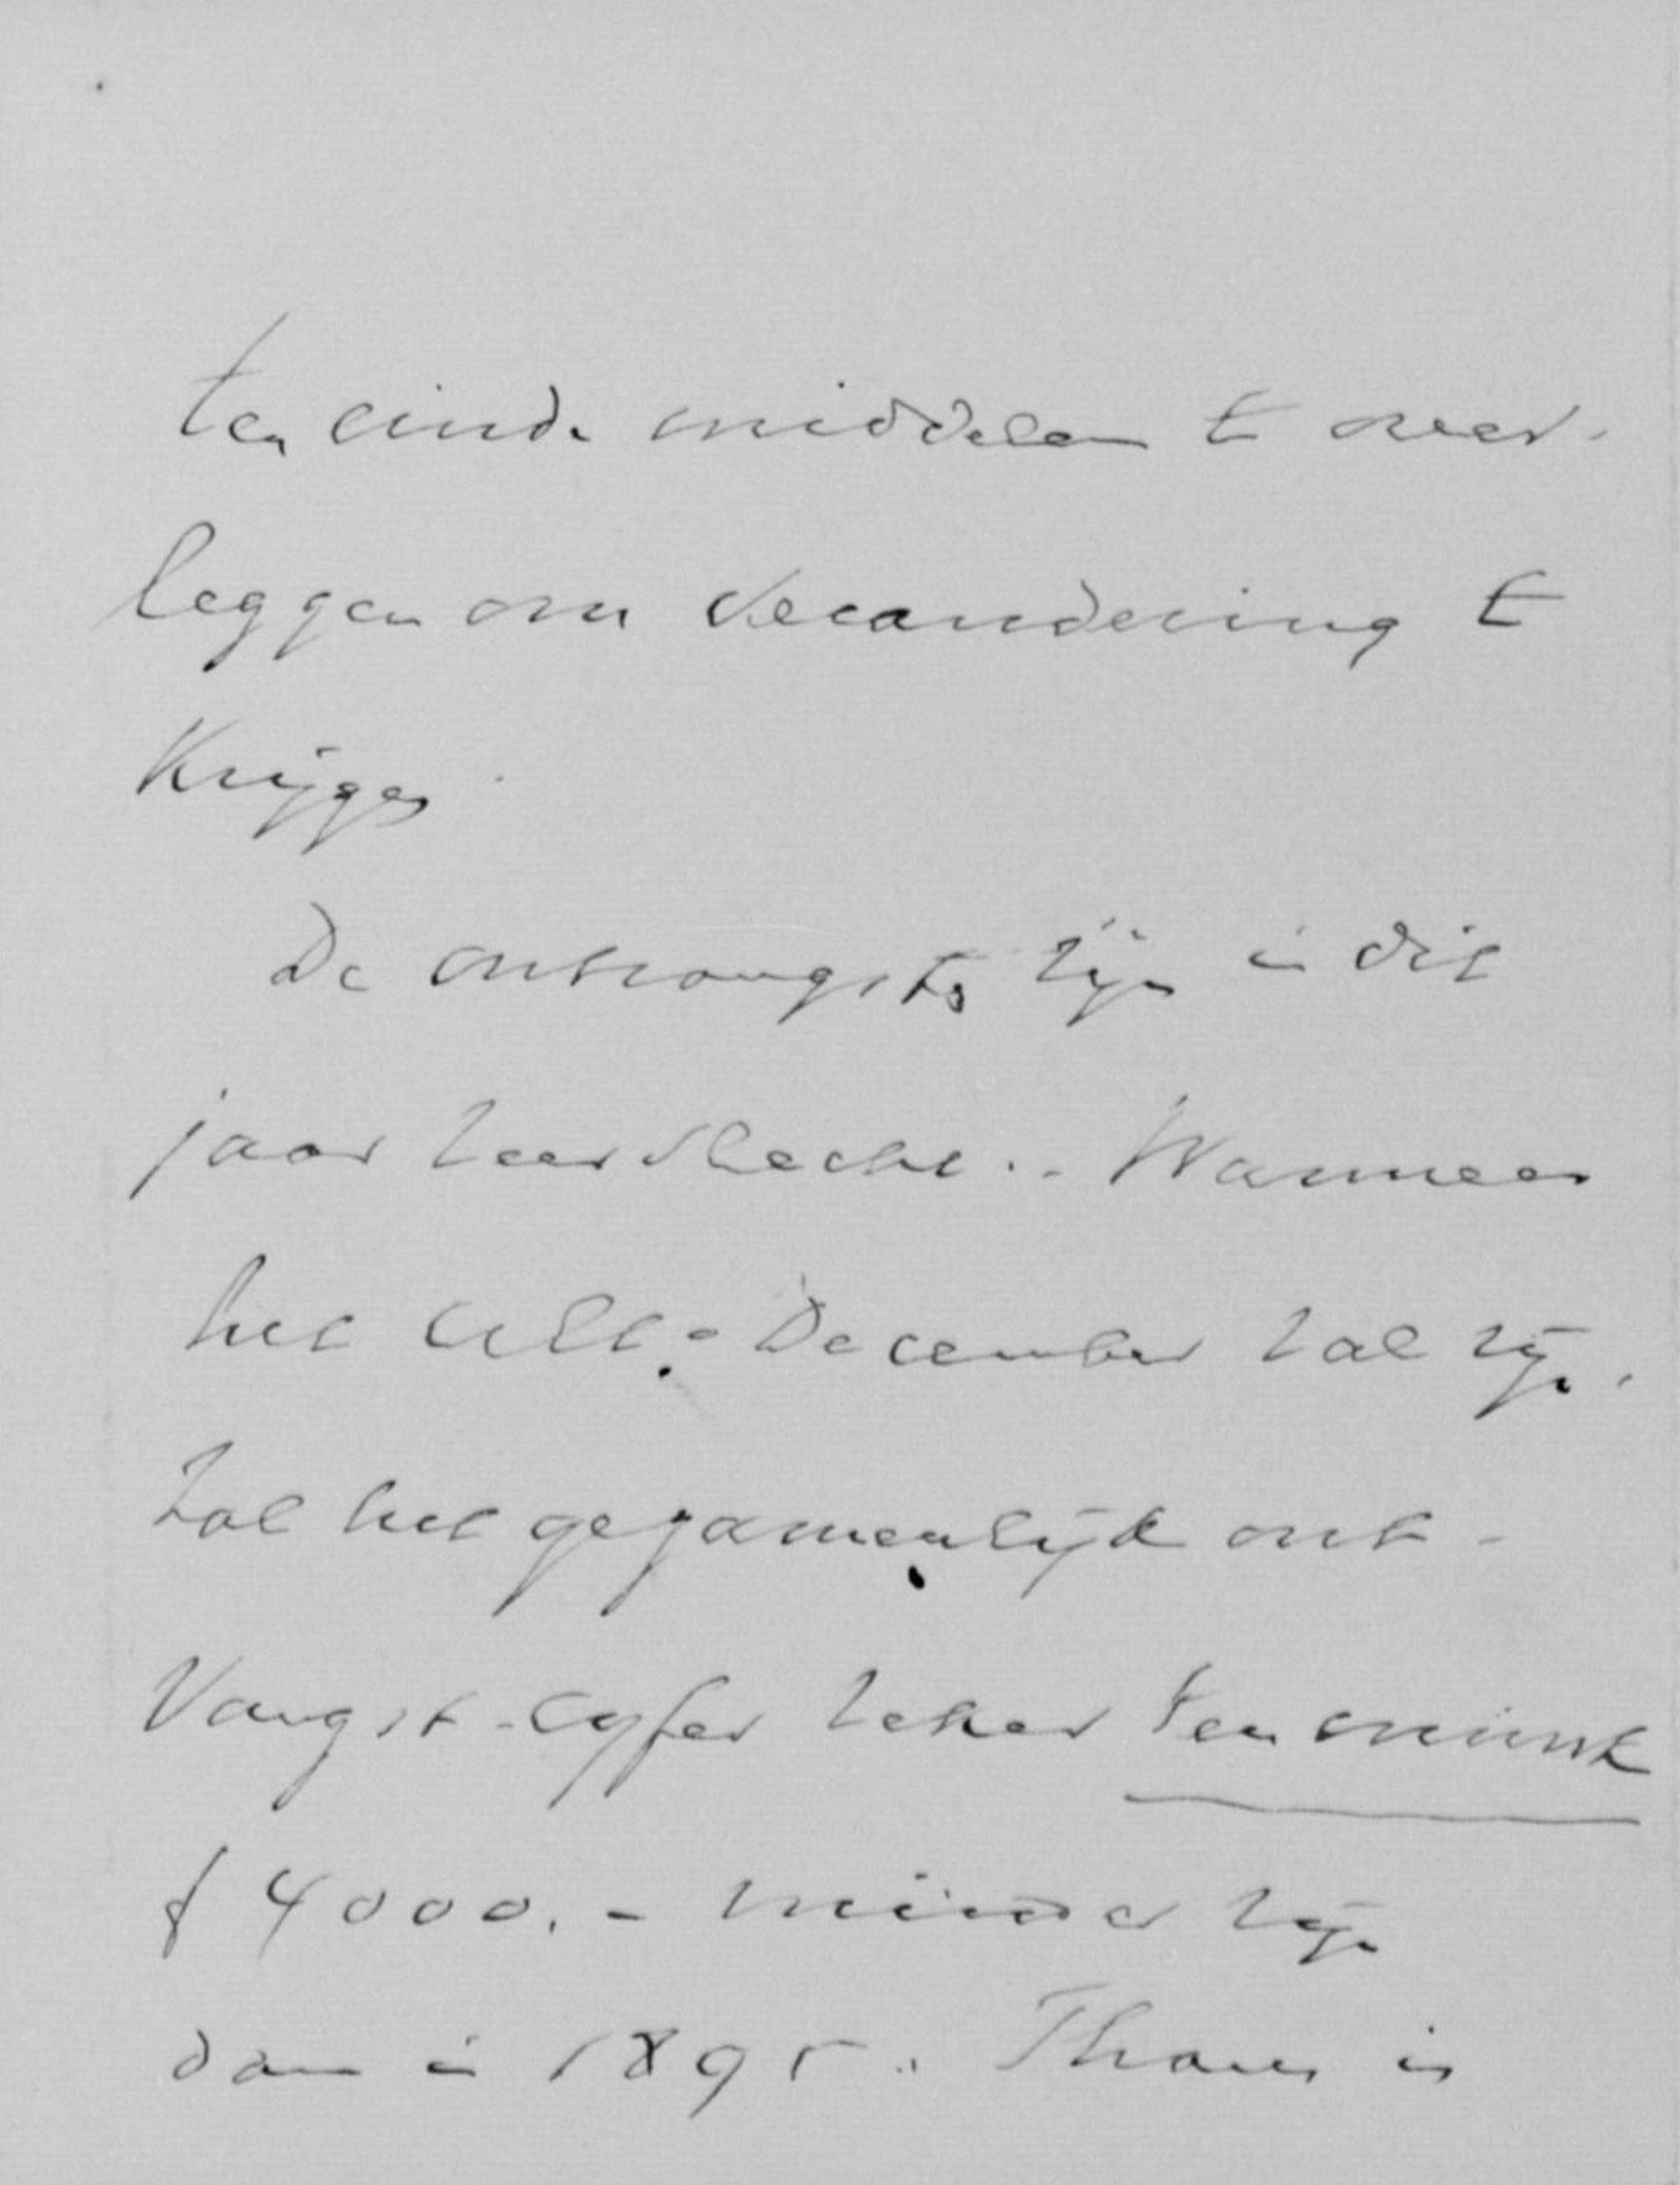 ten einde middelen te over-
leggen om verandering te
krijgen.
De ontvangsten zijn in dit
jaar zeer slecht. - Wanneer
het Ult: December zal zijn,
zal het gezamenlijk ont-
vangst-cijfer zeker ten minste
f 4000.- minder zijn
dan in 1895. Thans is